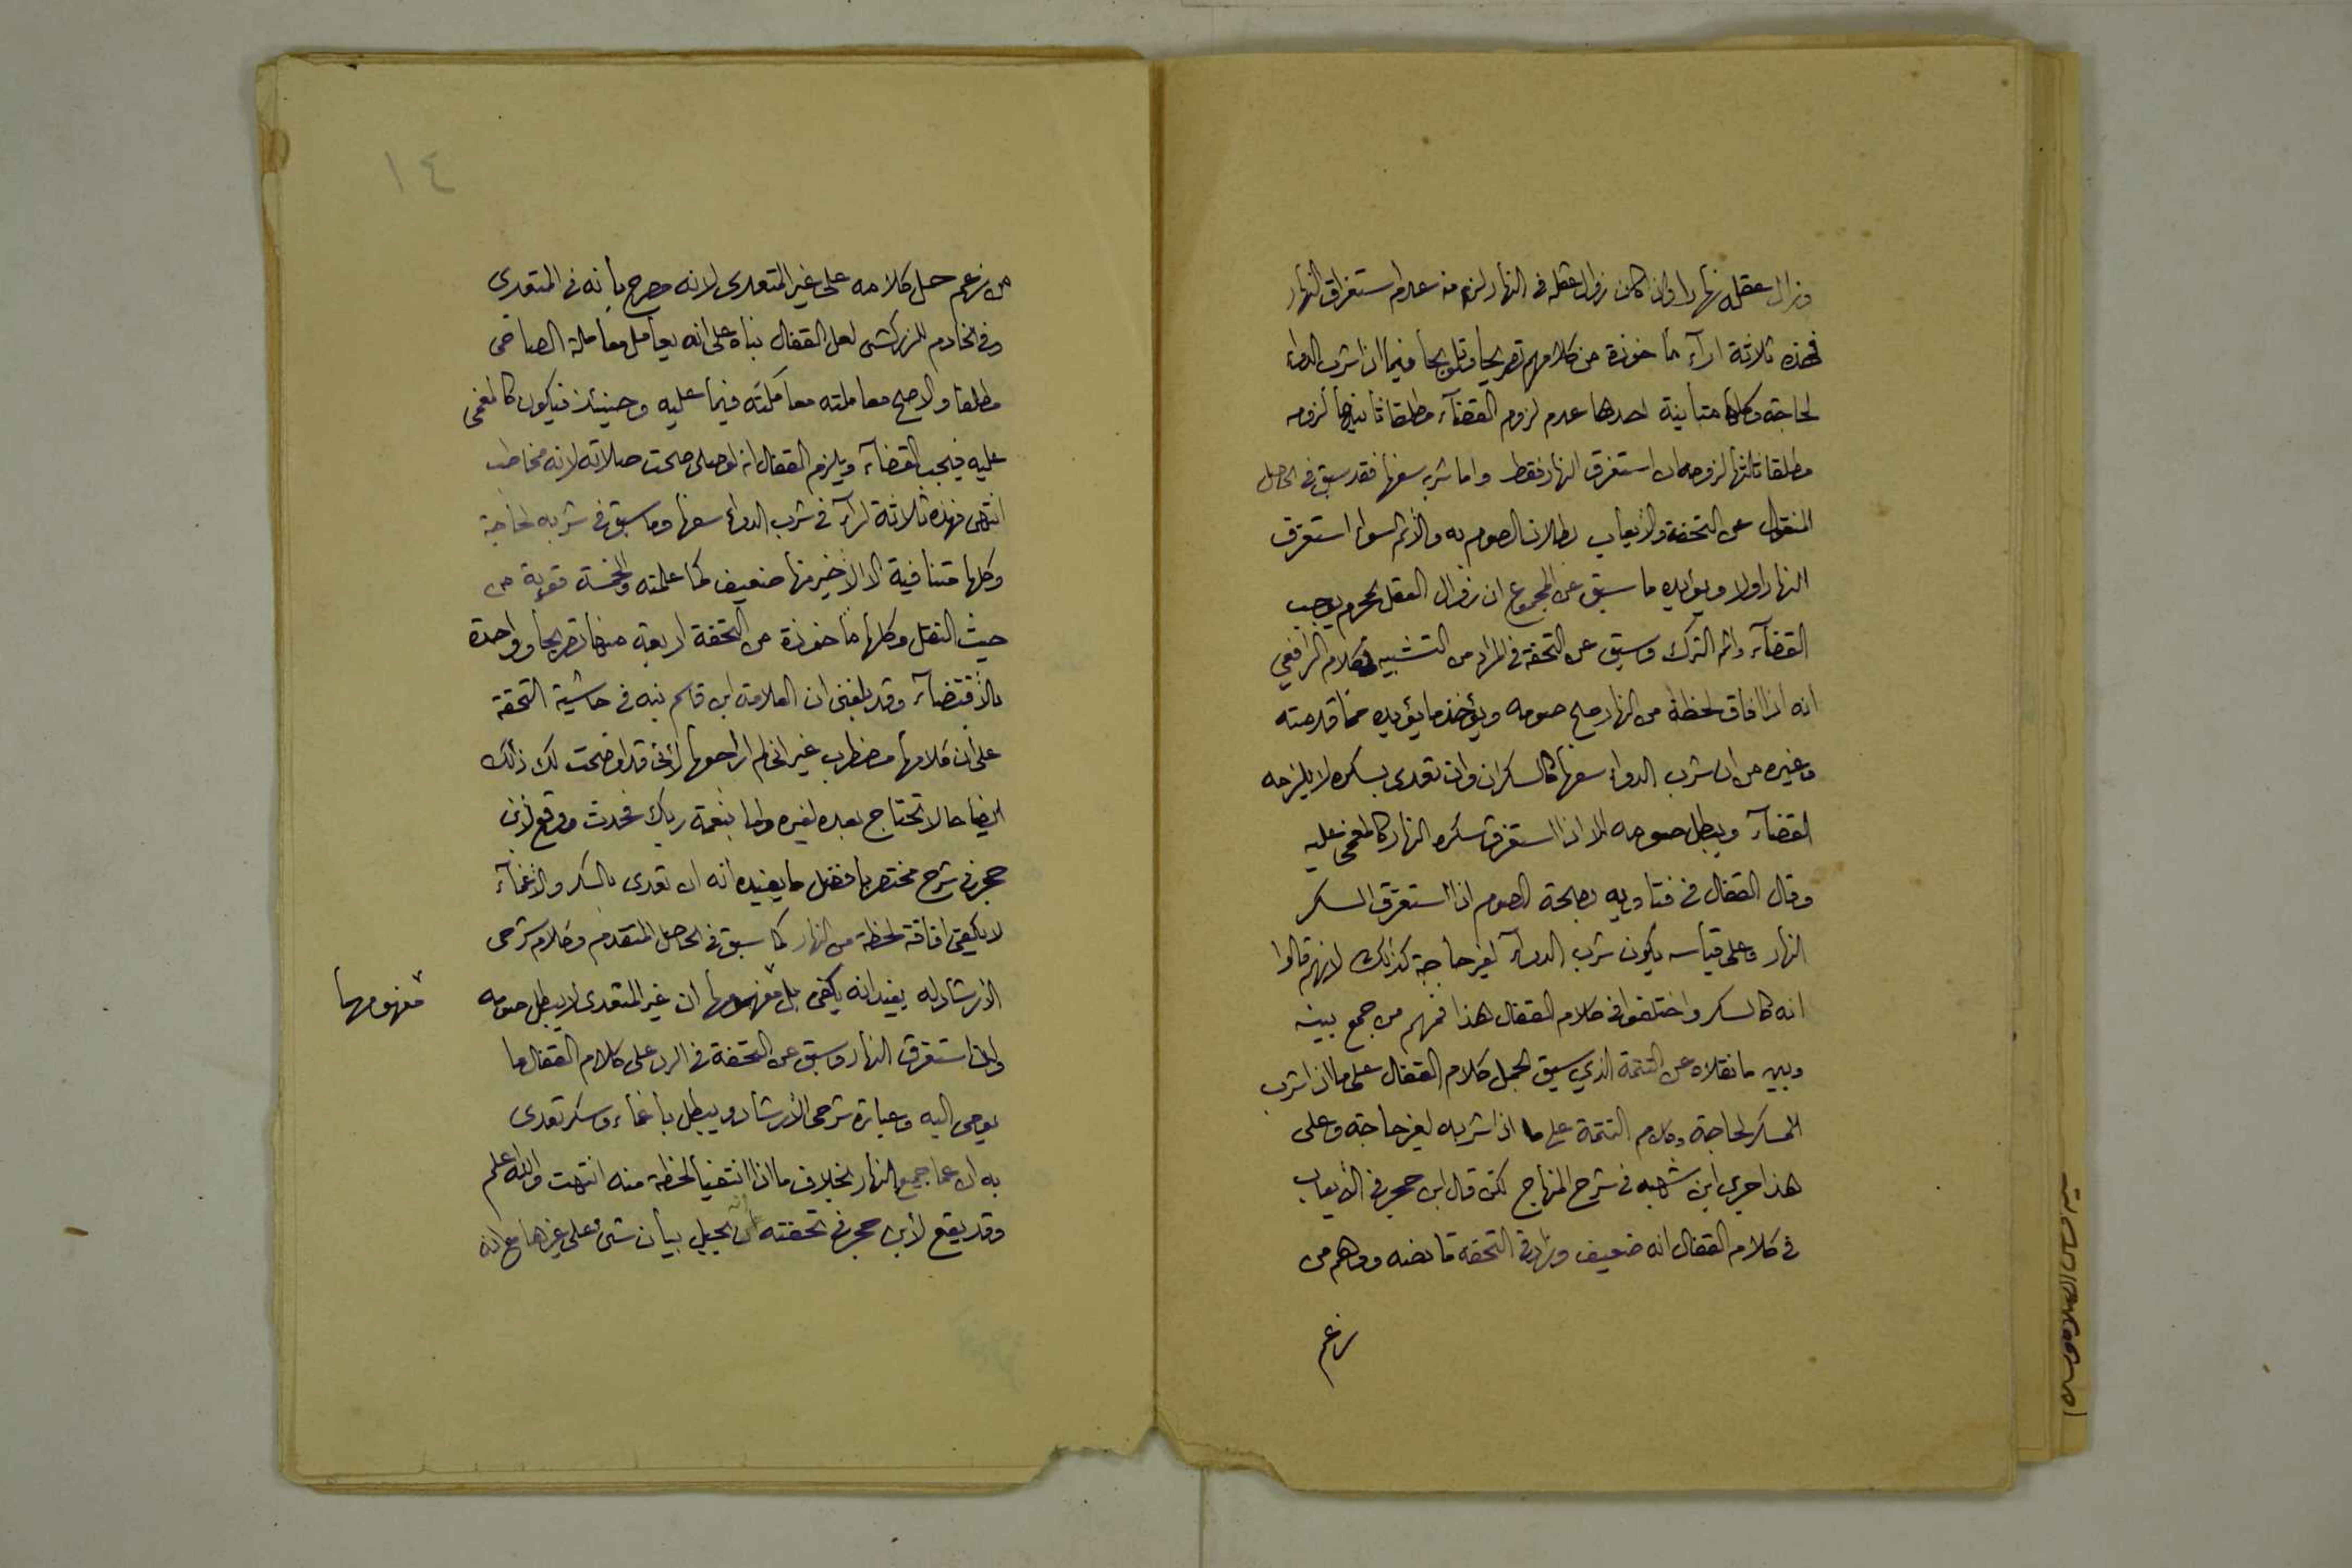 وزال عقله نهارا وان كان زوال عقله في النهار لزم منه عدم استغراق النهار
فهذه ثلاثة اراء مأخوذة من كلامهم تصريحا وتلويحا فيما اذا شرب الدواء
لحاجة وكلها متباينة احدها عدم لزوم القضاء مطلقا ثانيها لزومه
مطلقا ثالثها لزومه ان استغرق النهار فقط واما شربه سفها فقد سبق في الحاصل
المنقول عن التحفة والايعاب بطلان الصوم به والاثم سواء استغرق
النهار اولا ويؤيده ما سبق عن المجموع ان زوال العقل بمحرم يوجب
القضاء واثم الترك وسبق عن التحفة في المراد من التشبيه بكلام الرافعي
انه اذا افاق لحظة من النهار صح صومه ويؤخذ ما يؤيده مما قدمته
وغيره من ان شرب الدواء سفها كالسكران وان تعدى بسكره لا يلزمه
القضاء ويبطل صومه الا اذا استغرق سكره النهار كالمغمى عليه
وقال القفال في فتاويه بصحة الصوم اذا استغرق السكر
النهار وعلى قياسه يكون شرب الدواء لغير حاجة كذلك لانهم قالوا
انه كالسكر واختلفوا في كلام القفال هذا فمنهم من جمع بينه
وبين ما نقلاه عن التتمة الذي سبق بحمل كلام القفال على ما اذا شرب
المسكر لحاجة وكلام التتمة على ما اذا شربه لغير حاجة وعلى
هذا جرى ابن شهبه في شرح المنهاج لكن قال ابن حجر في الايعاب
في كلام القفال انه ضعيف وزاد في التحفة ما نصه ووهم من
زعم
١٤
من زعم حمل كلامه على غير المتعدى لانه صرح بأنه في المتعدى
وفي الخادم للزركشى لعل القفال بناه على انه يعامل معاملة الصاحى
مطلقا والاصح معاملته معاملته فيما عليه وحينئذ فيكون كالمغمى
عليه فيجب القضاء ويلزم القفال انه لو صلى صحت صلاته لانه مخاطب
انتهى فهذه ثلاثة اراء في شرب الدواء سفها وما سبق في شربه لحاجة
وكلها متنافية الا الاخير منها ضعيف كما علمته والخمسة قوية من
حيث النقل وكلها مأخوذة من التحفة اربعة منها تصريحا وواحدة
بالأقتضاء وقد بلغنى ان العلامة ابن قاسم نبه في حاشية التحفة
على ان كلامها مضطرب غير انى لم اراجعها لأنى قد اوضحت لك ذلك
ايضاحا لا تحتاج بعده لغيره واما بنعمة ربك فحدث ووقع لابن
حجر في شرح مختصر بافضل ما يفيده انه ان تعدى بالسكر والاغماء
لا يكفى افاقة لحظة من النهار كما سبق في الحاصل المتقدم وكلام شرحى
الارشاد له يفيد انه يكفى بل مفهومها ان غير المتعدى لا يبطل صومه
مفهومها
وان استغرق النهار وسبق عن التحفة في الرد على كلام القفال ما
يومى اليه وعبارة شرحى الأرشاد ويبطل باغماء وسكر تعدى
به ان عما جميع النهار بخلاف ما اذا انتفيا لحظة منه انتهت والله اعلم
وقد يقع لأبن حجر في تحفته أن يحيل بيان شئ على غيرها مع انه